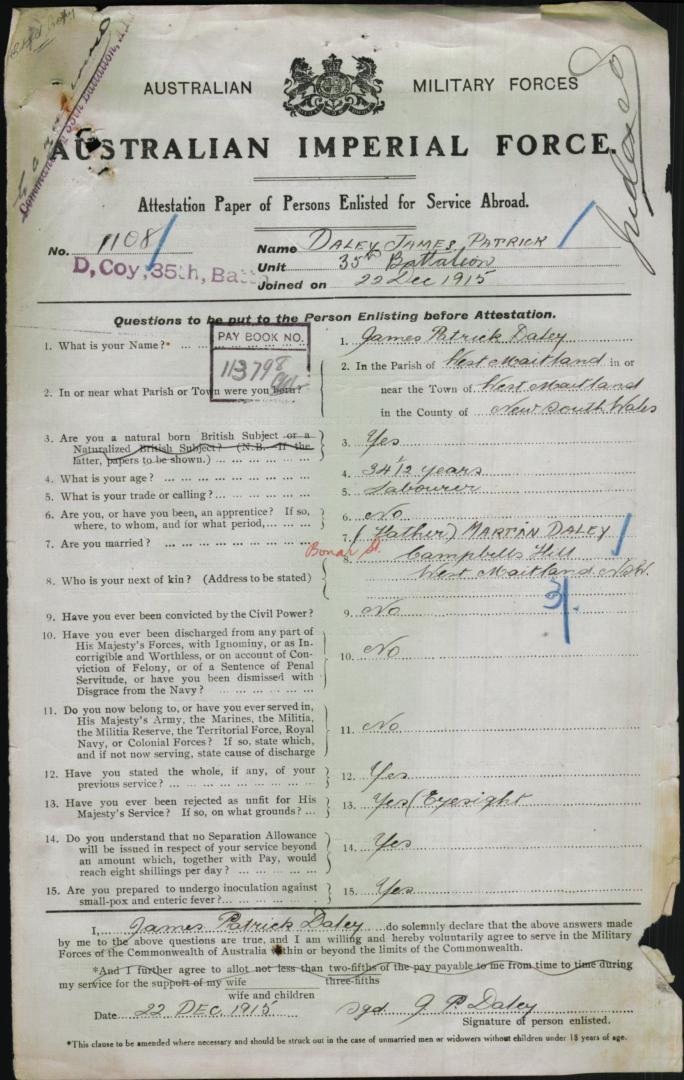 AUSTRALIAN MILITARY FORCES
AUSTRALIAN IMPERIAL FORCE.
Attestation Paper of Persons Enlisted for Service Abroad.
No. 1108 Name DALEY JAMES PATRICK
D, Coy, 35th, Batt Unit 35th Battalion
Joined on 22 Dec 1915
Questions to be put to the Person Enlisting before Attestation.
1. What is your Name?* ... 1. James Patrick Daley
PAY BOOK NO.
113798
2. In or near what Parish or Town were you born? 2. In the Parish of West Maitland in or
near the Town of West Maitland
in the County of New South Wales
3. Are you a natural born British Subject or a
Naturalized British Subject? (N.B. If the
latter, papers to be shown.) 3. Yes
4. What is your age? 4. 34 1/12 years
5. What is your trade or calling? 5. Labourer
6. Are you, or have you been, an apprentice? If so,
where, to whom, and for what period, 6. No
7. Are you married? 7. (Father) MARTIN DALEY
Bonar St. 8. Campbells Hill
8. Who is your next of kin? (Address to be stated) West Maitland NSW.
3/.
9. Have you ever been convicted by the Civil Power? 9. No
10. Have you ever been discharged from any part of
His Majesty's Forces, with Ignominy, or as In-
corrigible and Worthless, or on account of Con-
viction of Felony, or of a Sentence of Penal
Servitude, or have you been dismissed with
Disgrace from the Navy? 10. No
11. Do you now belong to, or have you ever served in,
His Majesty's Army, the Marines, the Militia,
the Militia Reserve, the Territorial Force, Royal
Navy, or Colonial Forces? If so, state which,
and if not now serving, state cause of discharge 11. No
12. Have you stated the whole, if any, of your
previous service? 12. Yes
13. Have you ever been rejected as unfit for His
Majesty's Service? If so, on what grounds? 13. Yes (Eyesight
14. Do you understand that no Separation Allowance
will be issued in respect of your service beyond
an amount which, together with Pay, would
reach eight shillings per day? 14. Yes
15. Are you prepared to undergo inoculation against
small-pox and enteric fever? 15. Yes
I, James Patrick Daley do solemnly declare that the above answers made
by me to the above questions are true, and I am willing and hereby voluntarily agree to serve in the Military
Forces of the Commonwealth of Australia within or beyond the limits of the Commonwealth.
*And I further agree to allot not less than two-fifths of the pay payable to me from time to time during
three-fifths
my service for the support of my wife
wife and children
Date 22 DEC 1915 sgd J P Daley
Signature of person enlisted.
*This clause to be amended where necessary and should be struck out in the case of unmarried men or widowers without children under 18 years of age.